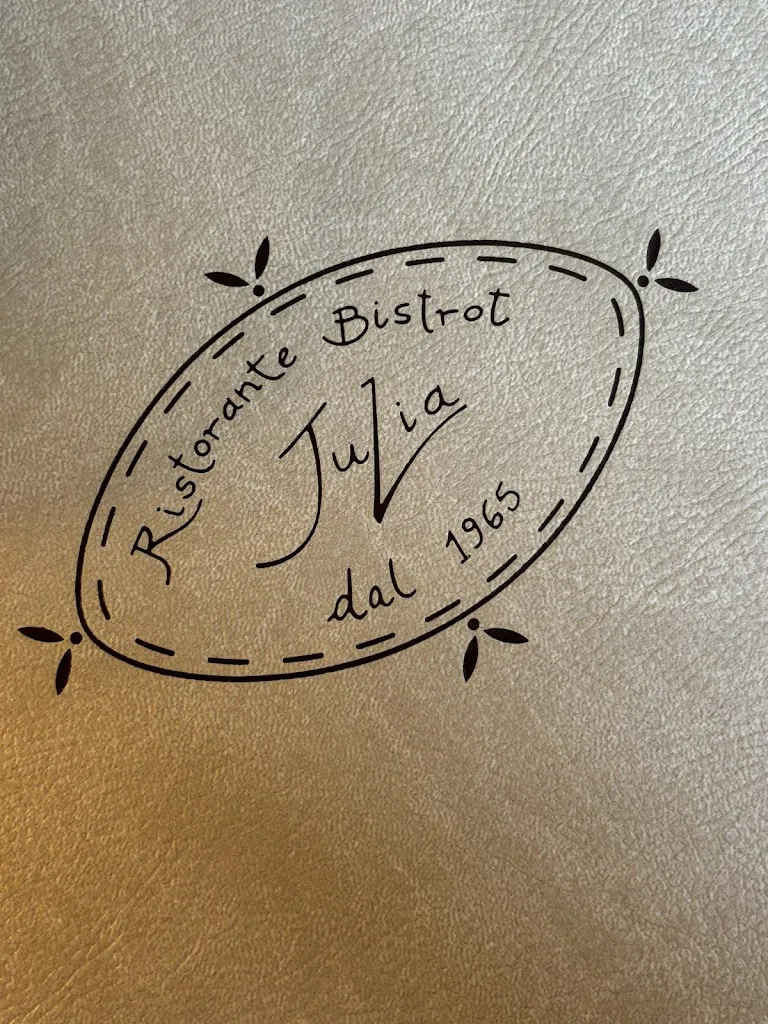 Ristorante Bistrot
Julia
dal 1965